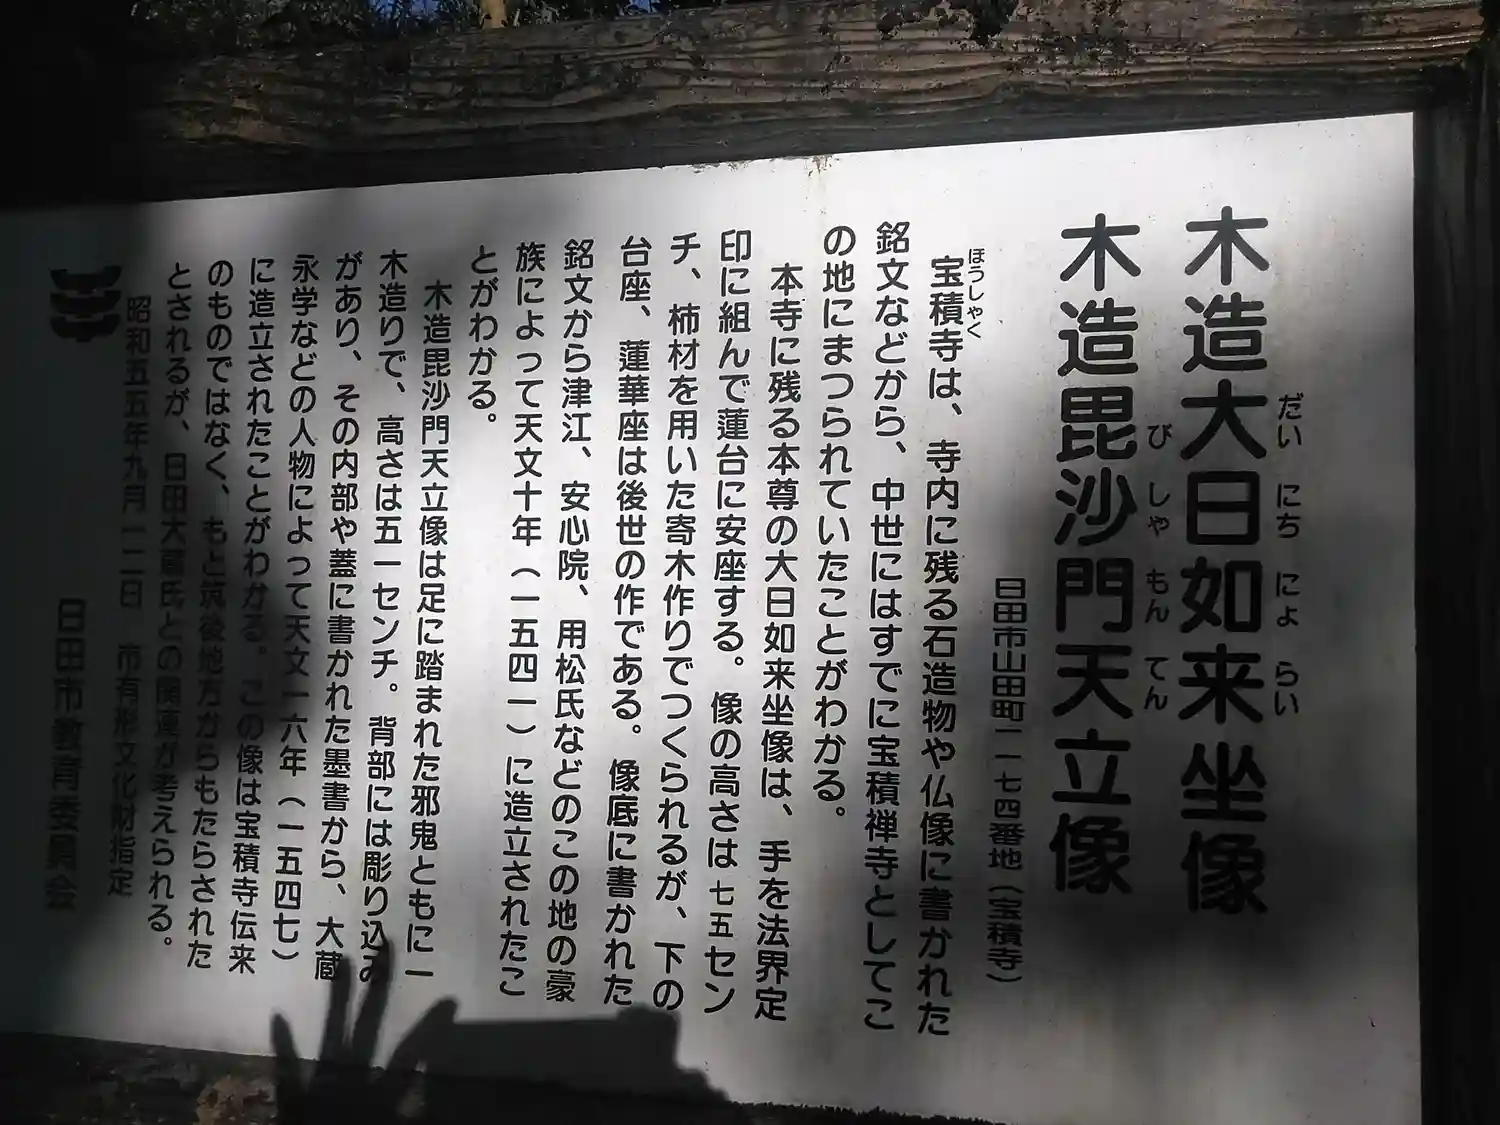 木造大日如来坐像
だいにちにょらい
木造毘沙門天立像
びしゃもんてん
日田市山田町二一七四番地(宝積寺)
ほうしゃく
宝積寺は、寺内に残る石造物や仏像に書かれた
銘文などから、中世にはすでに宝積禅寺としてこ
の地にまつられていたことがわかる。
本寺に残る本尊の大日如来坐像は、手を法界定
印に組んで蓮台に安座する。像の高さは七五セン
チ、柿材を用いた寄木作りでつくられるが、下の
台座、蓮華座は後世の作である。像底に書かれた
銘文から津江、安心院、用松氏などのこの地の豪
族によって天文十年(一五四一)に造立されたこ
とがわかる。
木造毘沙門天立像は足に踏まれた邪鬼ともに一
木造りで、高さは五一センチ。背部には彫り込み
があり、その内部や蓋に書かれた墨書から、大蔵
永学などの人物によって天文一六年(一五四七)
に造立されたことがわかる。この像は宝積寺伝来
のものではなく、もと筑後地方からもたらされた
とされるが、日田大蔵氏との関連が考えられる。
昭和五五年九月一二日 市有形文化財指定
日田市教育委員会